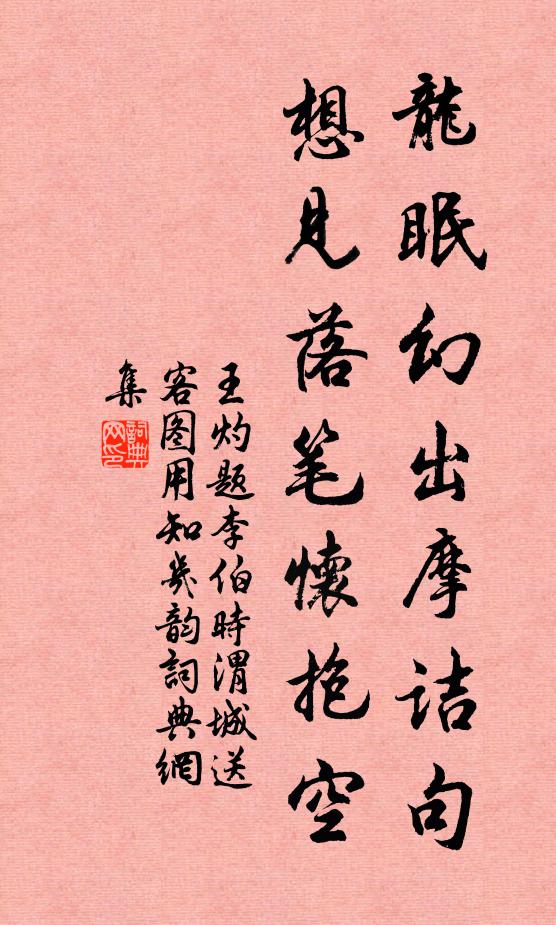 龍眠幻出摩詰句
想見落笔懷抱空
王灼题李伯時渭城送
客图用知幾韵詞典網
集
詞典
网印